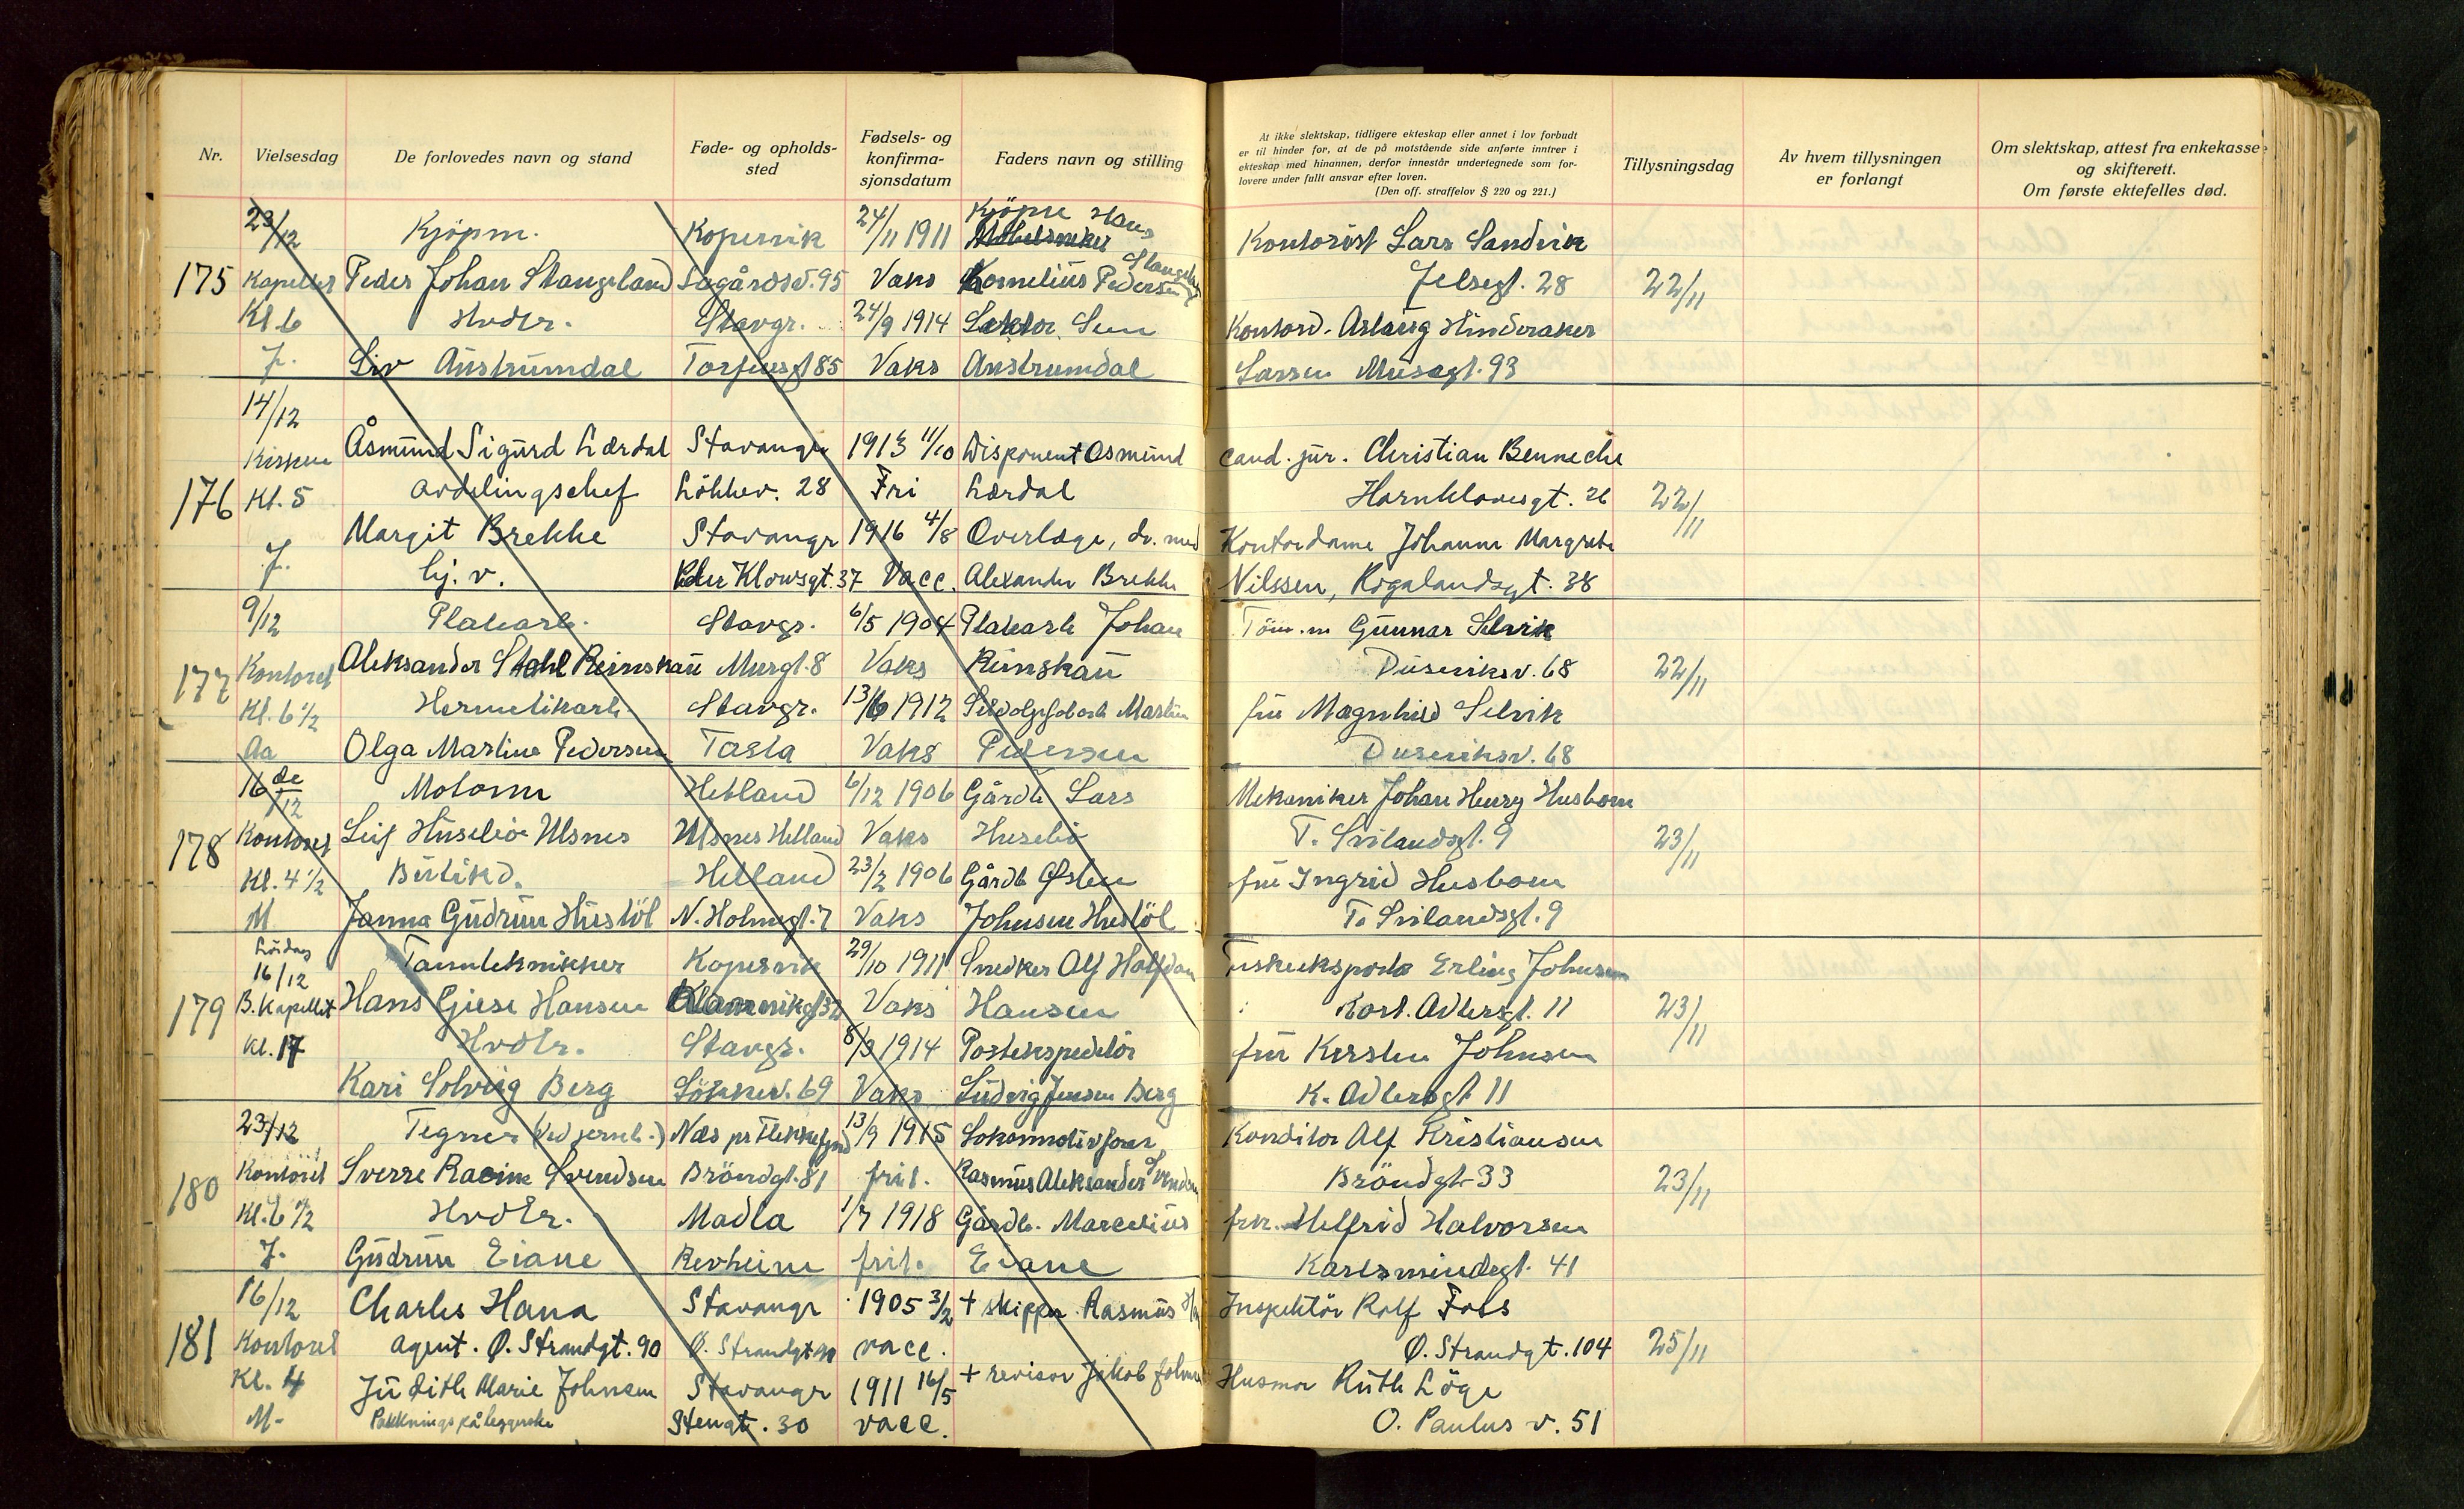 Nr.
Vielsesdag
De forlovedes navn og stand
Føde- og opholds-
sted
Fødsels- og
konfirma-
sjonsdatum
Faders navn og stilling
At ikke slektskap, tidligere ekteskap eller annet i lov forbudt
er til hinder for, at de på motstående side anførte inntrer i
ekteskap med hinannen, derfor innestår undertegnede som for-
lovere under fullt ansvar efter loven.
(Den off. straffelov § 220 og 221.)
Tillysningsdag
Av hvem tillysningen
er forlangt
Om slektskap, attest fra enkekasse
og skifterett.
Om første ektefelles død.
23/12 Kjöpm. Kopervik 24/11 1911 Kjöpm Hans Kontorist Lars Sandvik
175 Kapellet Peder Johan Stangeland Lagårdsv. 95 Vaks Kornelius Pedersen Stangeland Jelsegt. 28 22/11
Kl 6 Hvdtr. Stavgr. 24/9 1914 Lektor Sem Kontord. Aslaug Hinderaker
J. Liv Austrumdal Torfinsgt 85 Vaks Austrumdal Larsen Musegt. 93
14/12
Kirken Åsmund Sigurd Lærdal Stavangr 1913 11/10 Disponent Osmund cand. jur. Christian Benneche
176 Kl. 5 avdelingschef Lökkev. 28 Fri Lærdal Harahlavesgt. 26 22/11
Margit Brekke Stavangr 1916 4/8 Overlæge, dr. med Kontordame Johanne Margrete
J. hj. v. Peder Klowsgt. 37 Vacc. Alexander Brekke Nilssen, Rogalandsgt. 38
9/12 Platearb. Stavgr. 6/5 1904 Platearb Johan Töm.m Gunnar Selvik
177 Kontoret Aleksander Stahl Reinskau Murgt. 8 Vaks Reinskau Duseviksv. 68 22/11
Kl. 6 1/2 Hermetikarb. Stavgr. 13/6 1912 Sildoljefabarb Martin fru Magnhild Selvik
Aa Olga Martine Pedersen Tasta Vaks Pedersen Duseviksv. 68
16 de/12 Motorm Hetland 6/12 1906 Gårdb Lars Mekaniker Johan Henry Husbom
178 Kontoret Leif Husebö Ulsnes Ulsnes Hetland Vaks Husebö T. Svilandsgt. 9 23/11
Kl. 4 1/2 Butikd. Hetland 23/2 1906 Gårdb Østen fru Ingrid Husbom
M Janna Gudrun Hustöl N. Holmegt. 7 Vaks Johnsen Hustöl T. Svilandsgt. 9
Lördag
16/12 Tanntekniker Kopervik 29/10 1911 Snedker Alf Halfdan Erling Johnsen
179 B. Kapellet Hans Giese Hansen Vaks Hansen Kort. Adlersgt. 11 23/11
Kl. 17 Hvdtr. Stavgr. 8/3 1914 Postekspeditör fru Kirsten Johnsen
Kari Solveig Berg Lökkev. 69 Vaks Ludvig Jensen Berg K. Adlersgt 11
23/12 Tegner (ved jernb.) Næs pr Flekkefjord 13/9 1915 Lokomotivfører Konditor Alf Kristiansen
180 Kontoret Sverre Racine Svendsen Bröndgt. 81 frit. Rasmus Aleksander Svendsen Bröndgt 33 23/11
Kl. 6 1/2 Hvdtr. Madla 1/7 1918 Gårdb. Marcelius frk. Helfrid Halvorsen
J. Gudrun Eiane Revheim frit. Eiane Karlsmindegt. 41
16/12 Charles Hana Stavangr 1905 3/2 + skipper Rasmus Inspektör Rolf Foss
181 Kontoret agent. Ø. Strandgt. 90 Ø. Strandgt 90 vacc. Ø. Strandgt. 104 25/11
Kl. 4 Judith Marie Johnsen Stavangr 1911 16/5 + revisor Jakob Johnsen Husmor Ruth Löge
M. Pakkningspåleggerske Stengt. 30 vacc. O. Paulus v. 51